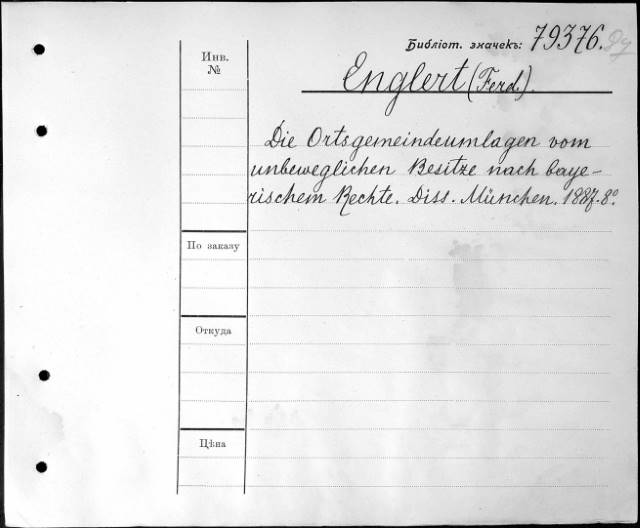 Библіот. значекъ: 79376.
Инв.
№
Englert (Ferd.).
Die Ortsgemeindeumlagen vom
unbeweglichen Besitze nach baye-
rischem Rechte. Diss. München. 1887. 8°.
По заказу
Откуда
Цѣна